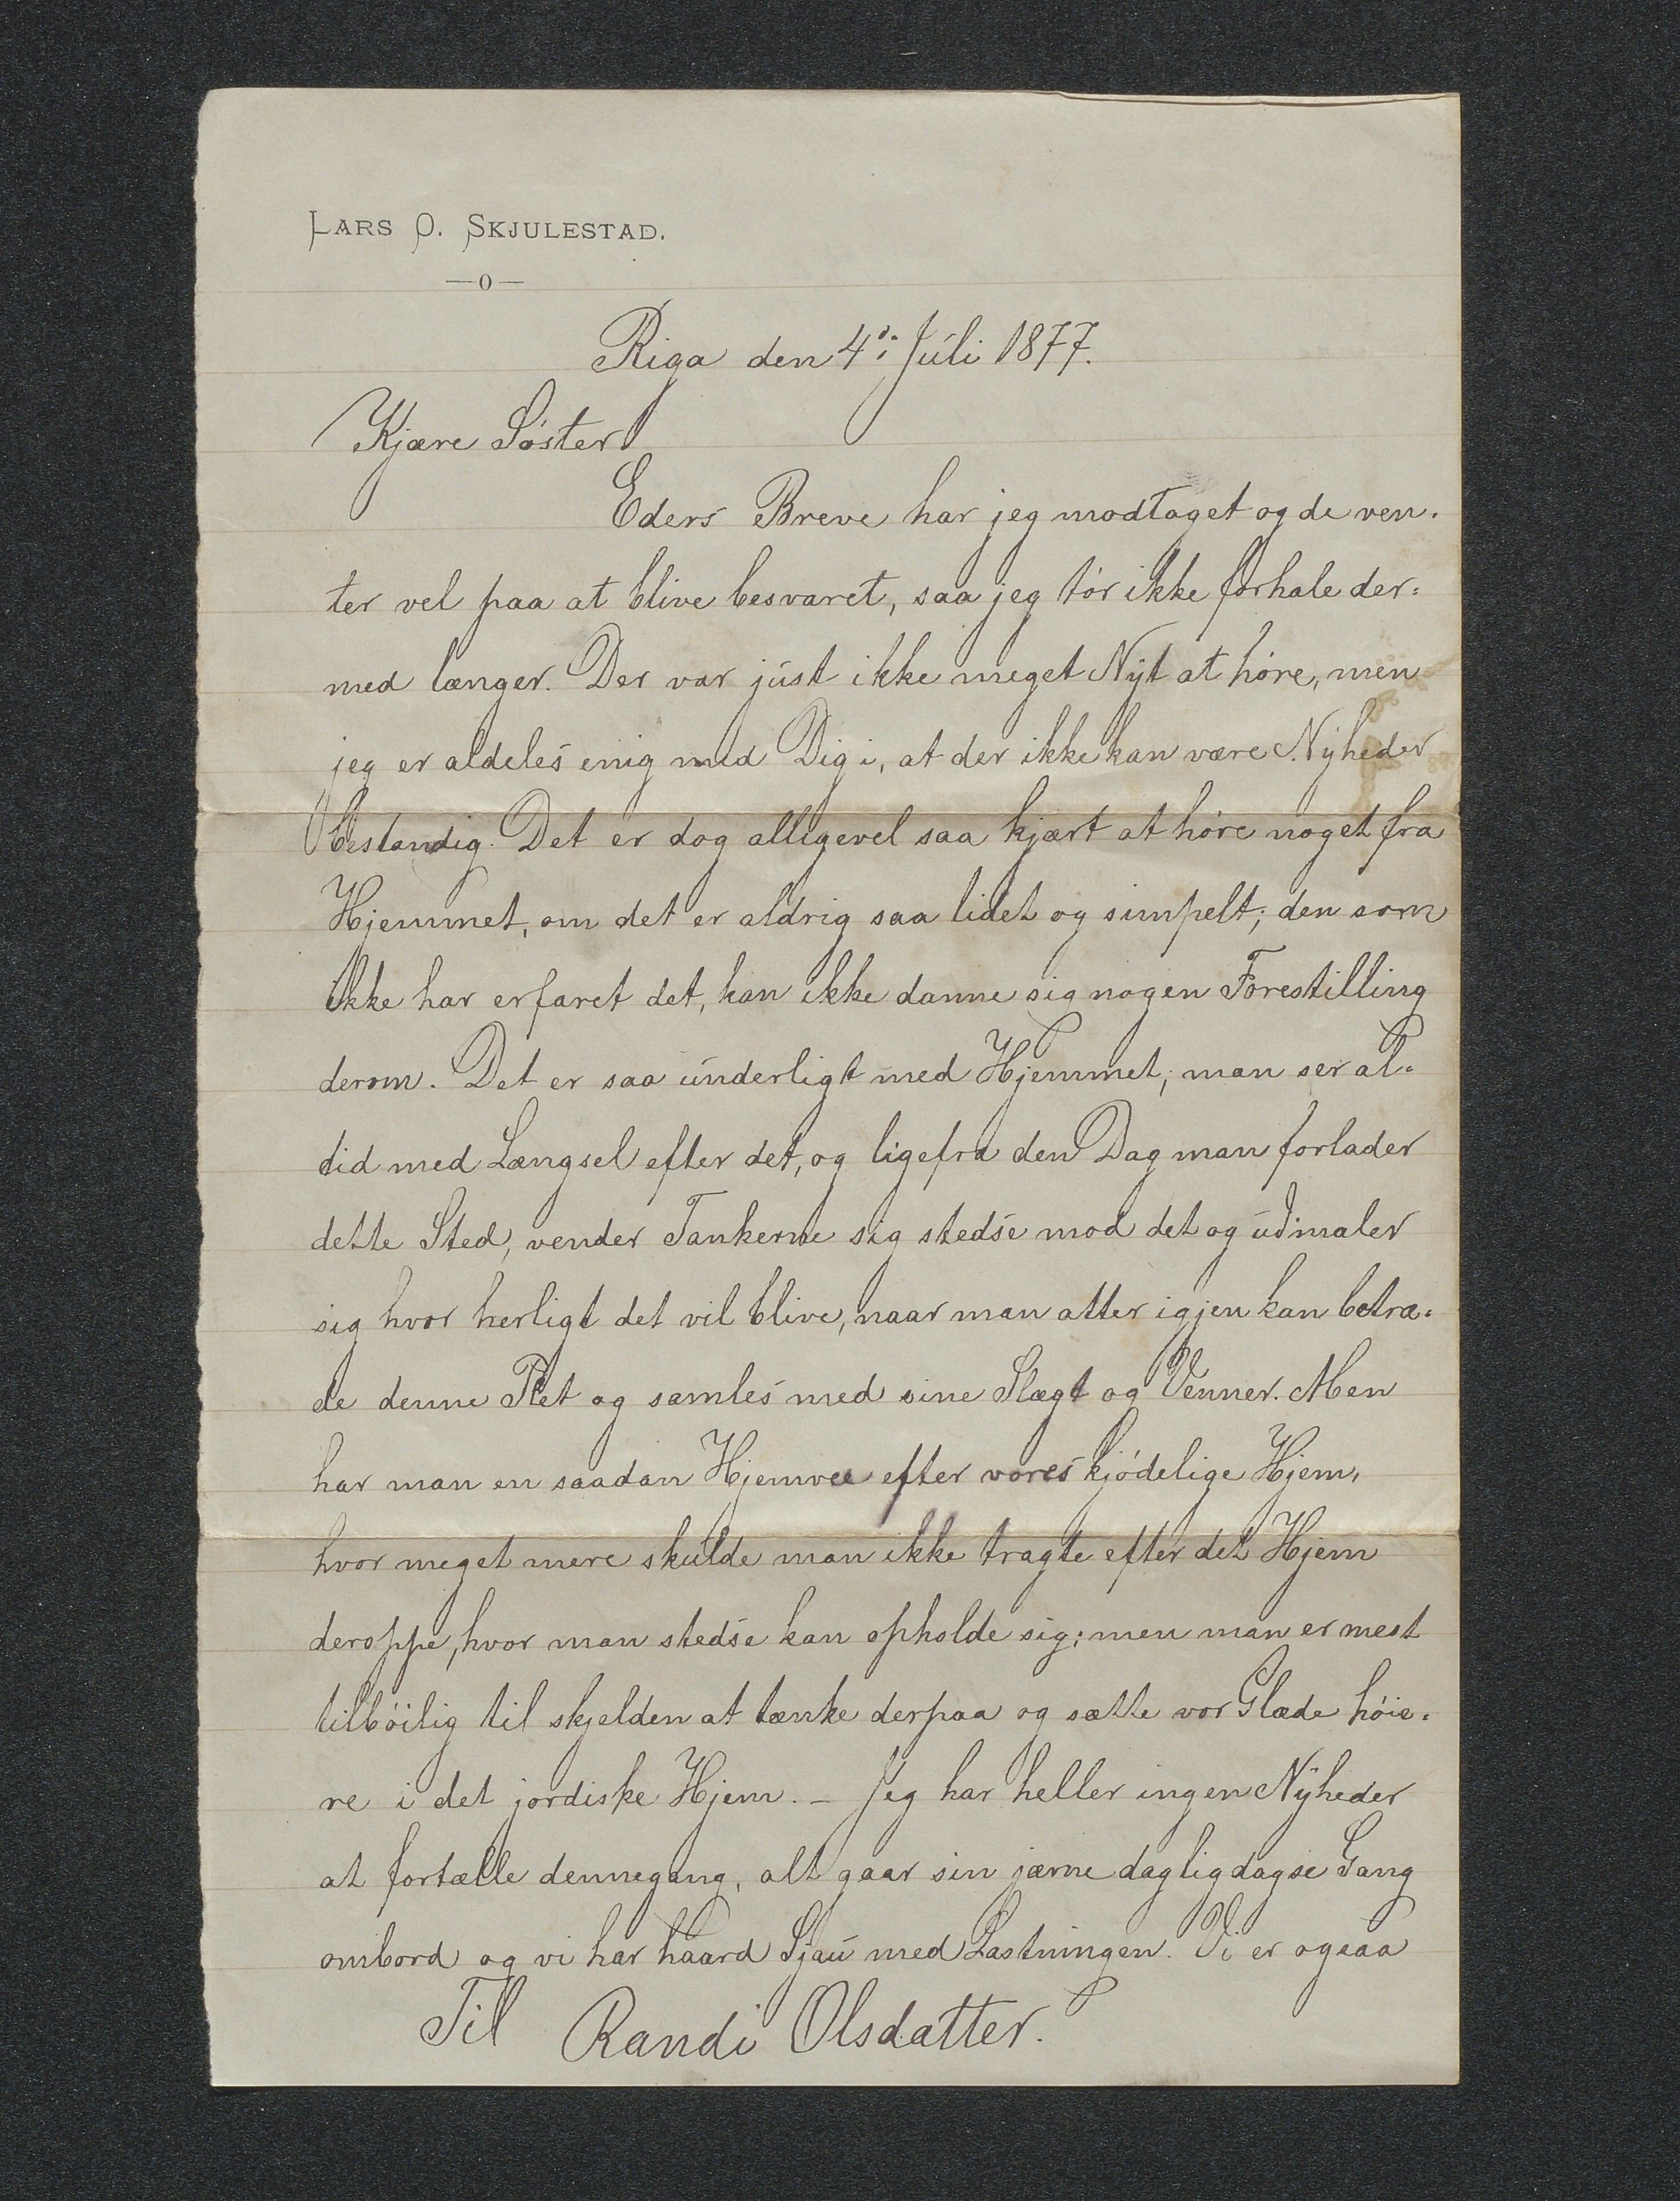 LARS O. SKJULESTAD.
—o—
Riga den 4de Juli 1877.
Kjære Søster
Eders Breve har jeg modtaget og de ven-
ter vel paa at blive besvaret, saa jeg tør ikke forhale der-
med længer. Der var just ikke meget Nyt at høre, men
jeg er aldeles enig med Dig i, at der ikke kan være Nyheder
bestandig. Det er dog alligevel saa kjært at høre noget fra
Hjemmet, om det er aldrig saa lidet og simpelt; den som
ikke har erfaret det, kan ikke danne sig nogen Forestilling
derom. Det er saa underligt med Hjemmet; man ser al-
tid med Længsel efter det, og ligefra den Dag man forlader
dette Sted, vender Tankerne sig stedse mod det og udmaler
sig hvor herligt det vil blive, naar man atter igjen kan betræ-
de denne Plet og samles med sine Slægt og Venner. Men
har man en saadan Hjemvee efter vores kjødelige Hjem,
hvor meget mere skulde man ikke tragte efter det Hjem
deroppe, hvor man stedse kan opholde sig; men man er mest
tilbøilig til skjelden at tænke derpaa og sætte vor Glæde høie-
re i det jordiske Hjem. – Jeg har heller ingen Nyheder
at fortælle dennegang, alt gaar sin jævne dagligdagse Gang
ombord og vi har haard Sjau med Lastningen. Vi er ogsaa
Til Randi Olsdatter.